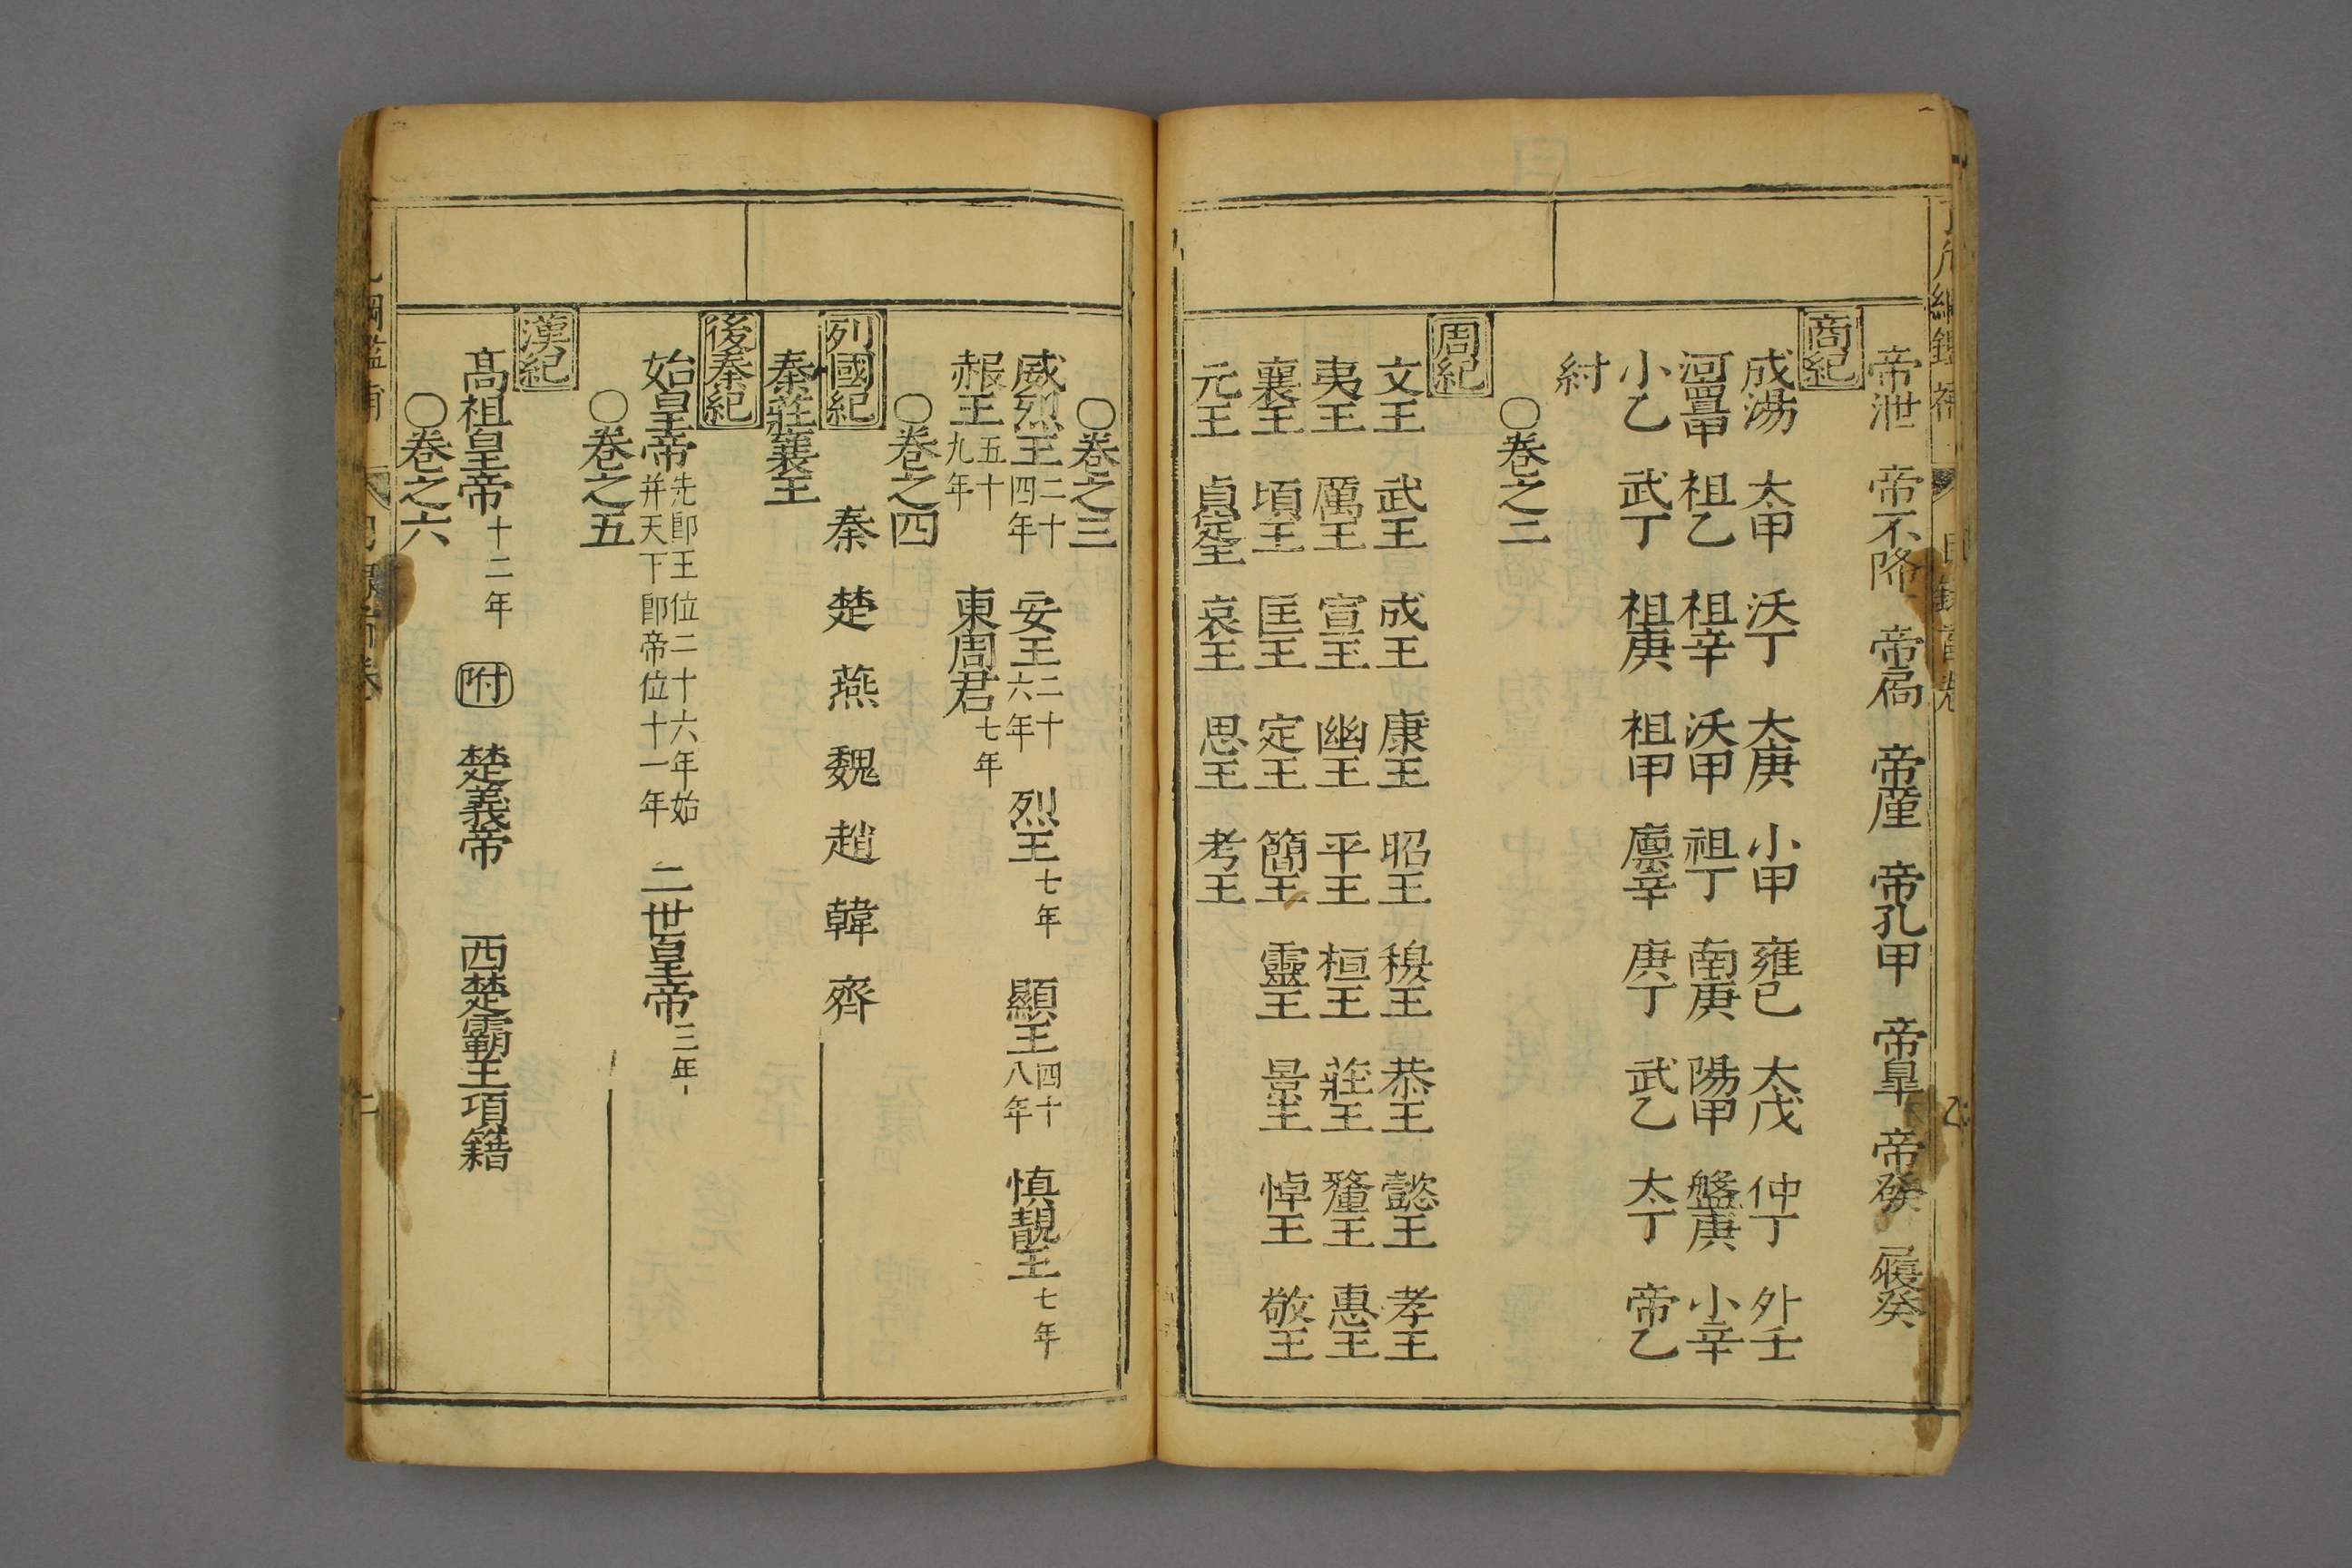 帝泄　帝不降　帝扃　帝廑　帝孔甲　帝皐　帝發　履癸
商紀
成湯　太甲　沃丁　大庚　小甲　雍已　大戊　仲丁　外壬
河亶甲　祖乙　祖辛　沃甲　祖丁　南庚　陽甲　盤庚　小辛
小乙　武丁　祖庚　祖甲　廪辛　庚丁　武乙　太丁　帝乙
紂
〇卷之二
周紀
文王　武王　成王　康王　昭王　穆王　恭王　懿王　孝王
夷王　厲王　宣王　幽王　平王　桓王　莊王　釐王　惠王
襄王　頃王　匡王　定王　簡王　靈王　景王　悼王　敬王
元王　貞定王　哀王　思王　考王
〇卷之三
威烈王二十四年　安王二十六年　烈王七年　顯王四十八年　慎靚王七年
赧王五十九年　東周君七年
〇卷之四
列國紀　秦　楚　燕　魏　趙　韓　齊
秦莊襄王
後秦紀
始皇帝先即王位二十六年始并天下即帝位十一年　二世皇帝三年
〇卷之五
漢紀
高祖皇帝十二年　附　楚義帝　西楚霸王項籍
〇卷之六